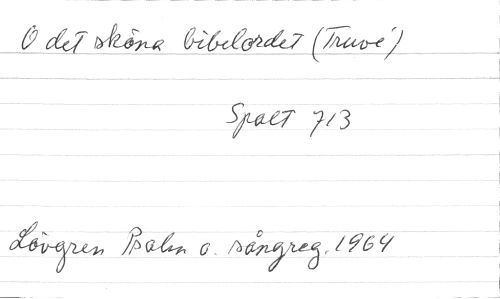 O det sköna bibelordet (Truvé)
Spalt 713
Lövgren Psalm o. sångreg. 1964